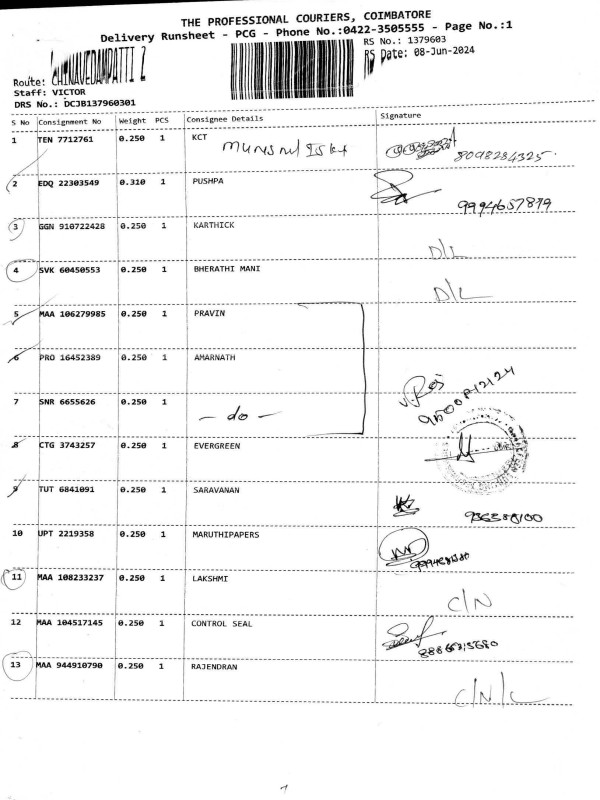 THE PROFESSIONAL COURIERS, COIMBATORE
Delivery Runsheet - PCG - Phone No.:0422-3505555 - Page No.:1
RS No.: 1379603
RS Date: 08-Jun-2024
Route: CHINAVEDAMPATTI 2
Staff: VICTOR
DRS No.: DCJB137960301
S No Consignment No Weight PCS Consignee Details Signature
1 TEN 7712761 0.250 1 KCT
8098284325.
2 EDQ 22303549 0.310 1 PUSHPA
9994657879
3 GGN 910722428 0.250 1 KARTHICK
D/L
4 SVK 60450553 0.250 1 BHERATHI MANI
D/L
5 MAA 106279985 0.250 1 PRAVIN
6 PRO 16452389 0.250 1 AMARNATH
7 SNR 6655626 0.250 1 - do -
8 CTG 3743257 0.250 1 EVERGREEN
9 TUT 6841091 0.250 1 SARAVANAN
10 UPT 2219358 0.250 1 MARUTHIPAPERS
11 MAA 108233237 0.250 1 LAKSHMI
C/N
12 MAA 104517145 0.250 1 CONTROL SEAL
13 MAA 944910790 0.250 1 RAJENDRAN
C/N/L